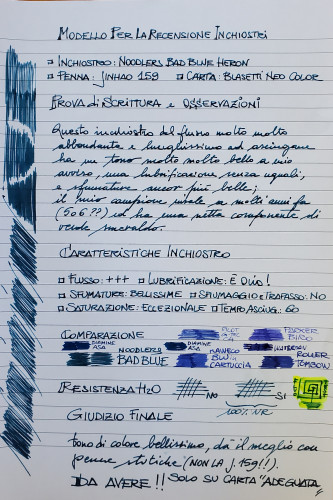 MODELLO PER LA RECENSIONE INCHIOSTRI
INCHIOSTRO: NOODLERS BAD BLUE HERON
PENNA: JINHAO 159 CARTA: BLASETTI NEO COLOR
PROVA di SCRITTURA e OSSERVAZIONI
Questo inchiostro dal flusso molto molto
abbondante e lunghissimo ad asciugare
ha un tono molto molto bello a mio
avviso, una lubrificazione senza uguali,
e sfumature ancor più belle;
il mio campione risale a molti anni fa
(5 o 6??) ed ha una netta componente di
verde smeraldo.
CARATTERISTICHE INCHIOSTRO
FLUSSO: +++ LUBRIFICAZIONE: È OLIO!
SFUMATURE: BELLISSIME SPIUMAGGIO e TRAPASSO: NO
SATURAZIONE: ECCEZIONALE TEMPO ASCIUG.: 60
COMPARAZIONE
DIAMINE
ASA
PILOT
PARKER
NOODLERS
BAD BLUE
DIAMINE
ASA
CARTUCCIA
ROLLER
TOMBOW
RESISTENZA H2O NO SI
100% WR
GIUDIZIO FINALE
tono di colore bellissimo, dà il meglio con
penne stitiche (NON LA J. 159!!).
DA AVERE!! SOLO SU CARTA "ADEGUATA"